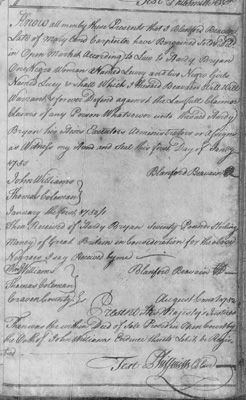 Know all men by these Presents that I Blanford Beavain
Late of Carpenter have Bargained Sold
in Open Market According to Law to Hardy Bryan
One Negro Woman Named Lucey and two Negro Girls
Named Lucey & which I the said Beavain Will
Warrant & forever Defend against the Lawfull Claim or
Claims of any Person Whatsoever unto the said Hardy
Bryan his Heirs Executors Administrators or assigns
as Witness my Hand and Seal this first Day of
1750
Blanford Beavain
John Williams
Thomas Coleman
January the first 1750
Then Received of Hardy Bryan Seventy Pounds Sterling
Money of Great Britain in Consideration for the above
Negroes I say Received by me
Williams
Blanford Beavain
Thomas Coleman
Craven County
August Court 1752
Present His Majestys Justices
Then was the within Deed of Sale Proved in Open Court by
the Oath of John Williams Ordered that it be Regis
Test